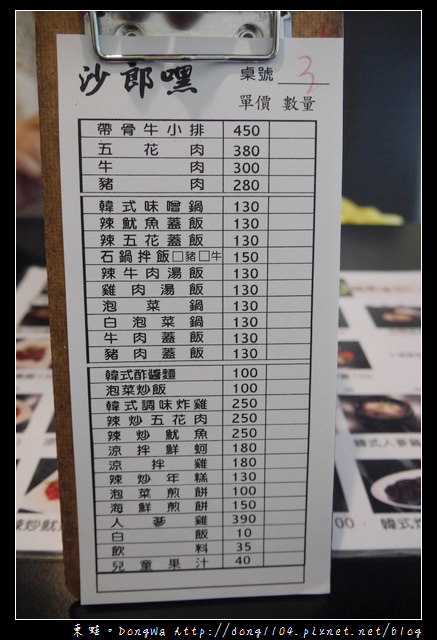 沙郎嘿 桌號 3
單價 數量
帶骨牛小排 450
五花肉 380
牛肉 300
豬肉 280
韓式味噌鍋 130
辣魷魚蓋飯 130
辣五花蓋飯 130
石鍋拌飯□豬□牛 150
辣牛肉湯飯 130
雞肉湯飯 130
泡菜鍋 130
白泡菜鍋 130
牛肉蓋飯 130
豬肉蓋飯 130
韓式酢醬麵 100
泡菜炒飯 100
韓式調味炸雞 250
辣炒五花肉 250
辣炒魷魚 250
涼拌鮮蚵 180
涼拌雞 180
辣炒年糕 130
泡菜煎餅 100
海鮮煎餅 150
人蔘雞 390
白飯 10
飲料 35
兒童果汁 40
辣炒魷
韓式人蔘雞
00
韓式炸
東蛙。DongWa http://dong1104.pixnet.net/blog